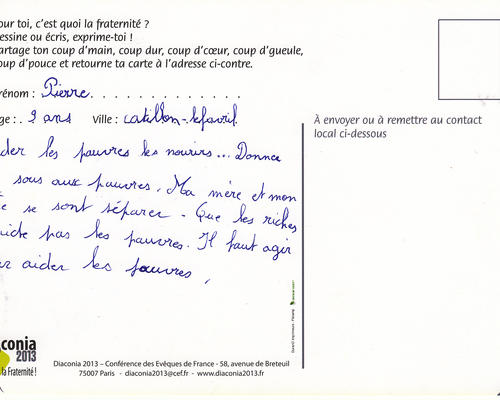 our toi, c'est quoi la fraternité ?
essine ou écris, exprime-toi !
artage ton coup d'main, coup dur, coup d'cœur, coup d'gueule,
oup d'pouce et retourne ta carte à l'adresse ci-contre.
rénom : Pierre
ge : 9 ans Ville : catillon-lefavril
À envoyer ou à remettre au contact
local ci-dessous
der les pauvres les nourirs... Donner
sous aux pauvres. Ma mère et mon
e se sont séparer - Que les riches
aide pas les pauvres. Il faut agir
er aider les pauvres,
conia
2013
la Fraternité !
Diaconia 2013 – Conférence des Evêques de France - 58, avenue de Breteuil
75007 Paris - diaconia2013@cef.fr - www.diaconia2013.fr